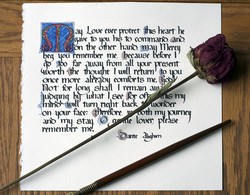 May Love ever protect this heart he
gave to you his to command and
on the other hand may Mercy
beg you remember me because before I
too far away from all your present
worth the thought I will return to you
once more already comforts me God
Not for long shall I remain away
judging by what I see for often this my
mind will turn right back to wonder
on your face therefore in both my journey
and my stay gentle lover please
remember me.
Dante Alighieri